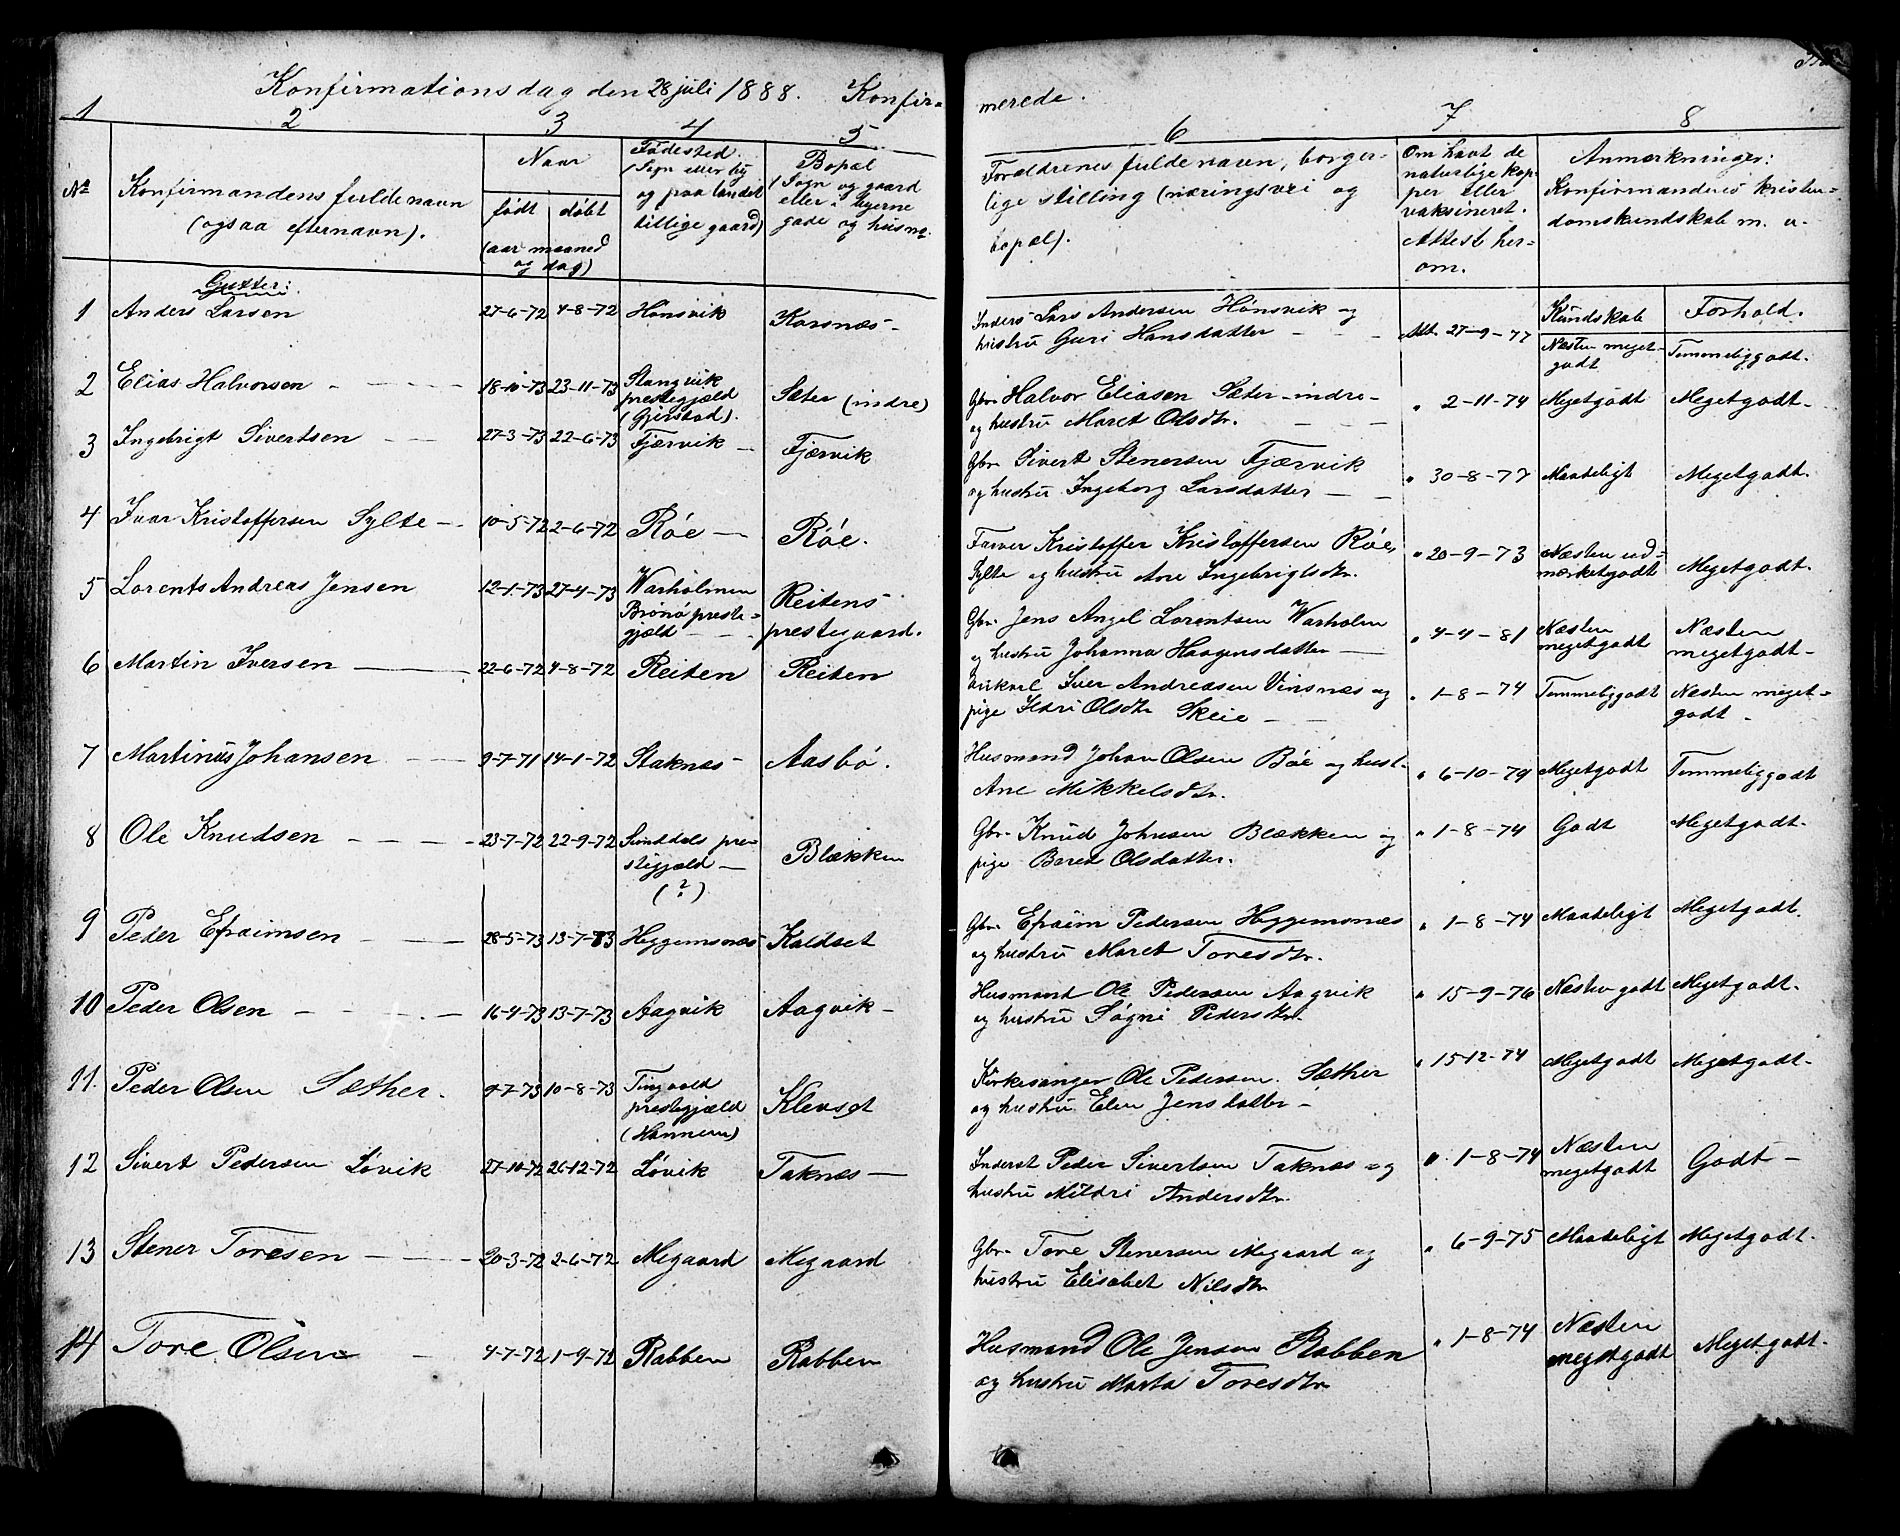 Konfirmationsdag den 28 juli 1888. Konfir=
merede.
1 2 3 4 5 6 7 8
No
Konfirmandens fulde navn
(ogsaa efternavn).
Naar
født døbt
(aar maaned
og dag)
Fødested.
(Sogn eller by
og paa landet
tillige gaard)
Bopæl
(Sogn og gaard
eller i byerne
gade og husno.
Forældrenes fulde navn, borger-
lige stilling (næringsvei og
bopæl).
Om havt de
naturlige kop
per eller
vaksineret.
Attest her=
om.
Anmærkninger:
Konfirmandens kristen=
domskundskab m. v.
Kundskab Forhold.
Gutter:
1 Anders Larsen 27-6-72 4-8-72 Hønsvik Korsnæs-
Inders Lars Andersen Hønsvik og
hustru Guri Hansdatter - -
Att. 27-9-77 Næsten meget-
godt
Temmeliggodt.
2 Elias Halvorsen - - - 18-10-73 23-11-73 Stangvik
prestegjæld
(Gjerstad).
Sæter (indre)
Gbr. Halvor Eliasen Sæter-indre-
og hustru Maret Olsdtr. - -
" 2-11-74 Megetgodt Megetgodt-
3 Ingebrigt Sivertsen - - 27-3-73 22-6-73 Fjærvik - Fjærvik
Gbr. Sivert Stenersen Fjærvik
og hustru Ingeborg Larsdatter - -
" 30-8-77 Maadeligt Megetgodt.
4 Ivar Kristoffersen Sylte - 10-5-72 2-6-72 Røe - Røe.
Farver Kristoffer Kristoffersen Røe,
Sylte og hustru Ane Ingebrigtsdtr.
" 20-9-73 Næsten ud=
mærketgodt
Megetgodt.
5 Lorents Andreas Jensen 12-1-73 27-4-73 Warholmen
Brønø preste=
gjæld - -
Reitens
prestegaard.
Gbr. Jens Angel Lorentsen Warholm
og hustru Johanna Haagensdatter -
" 4-4-81 Næsten
megetgodt
Næsten
megetgodt-
6 Martin Iversen - 22-6-72 4-8-72 Reiten Reiten
Iver Andreasen Vinsnæs og
pige Ildri Olsdtr. Skeie - -
" 1-8-74 Temmeliggodt Næsten meget=
godt -
7 Martinus Johansen - - 9-7-71 14-1-72 Staknæs- Aasbø.
Husmand Johan Olsen Bøe og hust.
Ane Mikkelsdtr.
" 6-10-79 Megetgodt Temmeliggodt
8 Ole Knudsen - - - 23-7-72 22-9-72 Sunddals pre-
stegjæld -
(?)
Blækken
Gbr. Knud Johnsen Blækken og
pige Beret Olsdatter.
" 1-8-74 Godt Megetgodt-
9 Peder Efraimsen - - 28-5-73 13-7-73 Heggemsnæs Kaldset
Gbr. Efraim Pedersen Heggemsnæs
og hustru Maret Toresdtr.
" 1-8-74 Maadeligt Megetgodt.
10 Peder Olsen - - - 16-4-73 13-7-73 Aagvik Aagvik-
Husmand Ole Pedersen Aagvik
og hustru Søgni Pedersdtr.
" 15-9-76 Næsten godt Megetgodt-
11. Peder Olsen Sæther. 9-7-73 10-8-73 Tingvold
prestegjæld
(Nannem)
Klevset
Kirkesanger Ole Pedersen Sæther
og hustru Elen Jensdatter -
" 15-12-74 Megetgodt Megetgodt-
12 Sivert Pedersen Løvik 27-10-72 26-12-72 Løvik Taknæs-
Inderst Peder Sivertsen Taknæs og
hustru Mildri Andersdtr.
" 1-8-74 Næsten
megetgodt
Godt-
13 Stener Toresen - - 20-3-72 2-6-72 Megaard Megaard
Gbr. Tore Stenersen Megaard og
hustru Elisabet Nilsdtr.
" 6-9-75 Maadeligt Megetgodt-
14 Tore Olsen - 4-7-72 1-9-72 Rabben Rabben
Husmand Ole Jensen Rabben
og hustru Marta Toresdtr.
" 1-8-74 Næsten
megetgodt
Megetgodt-